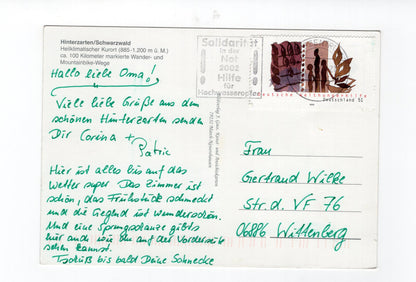 Hinterzarten/Schwarzwald
Heilklimatischer Kurort (885-1.200 m ü. M.)
ca. 100 Kilometer markierte Wander- und
Mountainbike-Wege
Hallo liebe Oma!
Viele liebe Grüße aus dem
schönen Hinterzarten senden
Dir Corina +
Patric
Hier ist alles bis auf das
Wetter super. Das Zimmer ist
schön, das Frühstück schmeckt
und die Gegend ist wunderschön.
Und eine Sprungschanze gibts
hier auch wie Du auf der Vorderseite
sehen kannst.
Tschüß bis bald Deine Schnecke
Solidarität
in der
Not
2002
Hilfe
für
Hochwasseropfer
Deutsche Welthungerhilfe
Deutschland 51
Frau
Gertrand Wilke
Str. d. VF 76
06886 Wittenberg